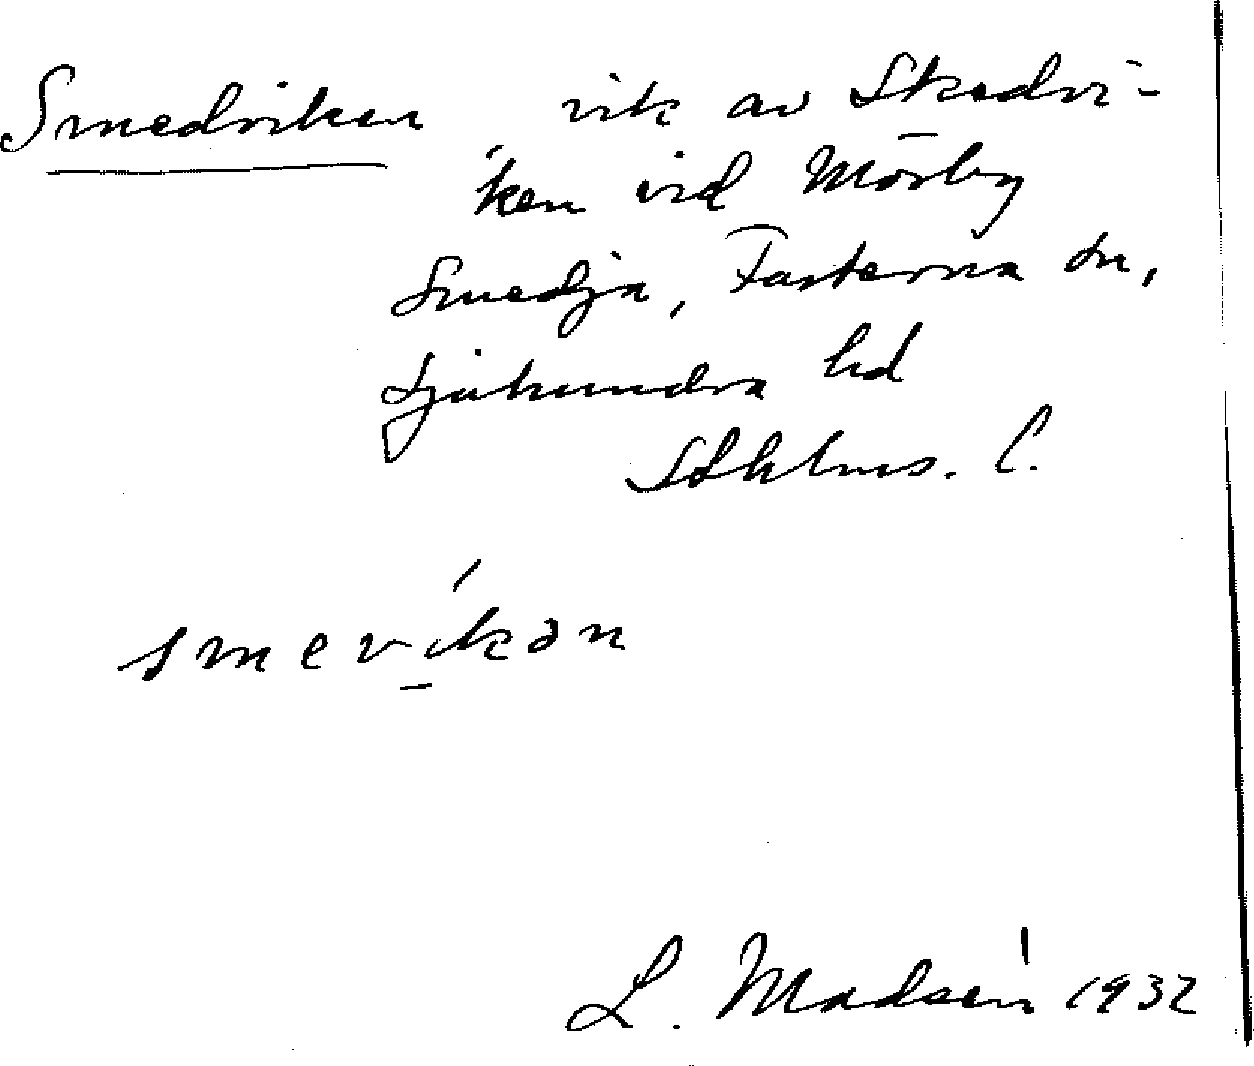 Smedviken vik av Skedvi-
ken vid Mörby
Smedja, Fasterna sn,
Sjuhundra hd
Sthlms. l.
smevikən
L. Madsén 1932